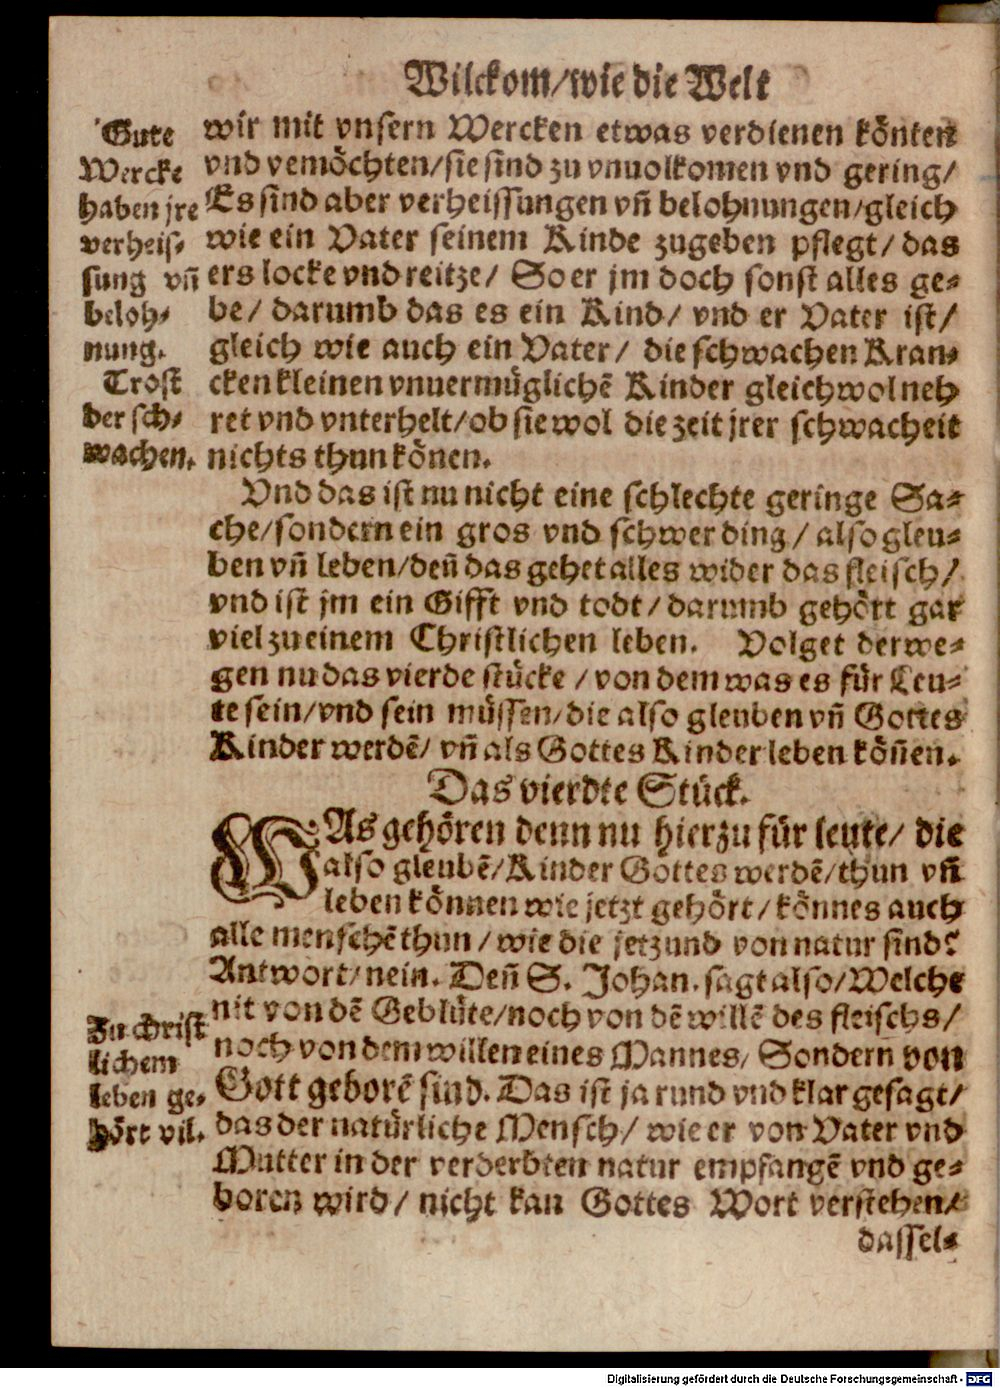 Wilckom/wie die Welt
Gute
Wercke
haben jre
verheis-
sung vñ
beloh-
nung.
Trost
der sch-
wachen.
wir mit vnsern Wercken etwas verdienen könten
vnd vemöchten/sie sind zu vnuolkomen vnd gering/
Es sind aber verheissungen vñ belohnungen/gleich
wie ein Vater seinem Kinde zugeben pflegt/das
ers locke vnd reitze/ So er jm doch sonst alles ge-
be/ darumb das es ein Kind/ vnd er Vater ist/
gleich wie auch ein Vater/ die schwachen Kran-
cken kleinen vnuermüglichẽ Kinder gleichwol neh
ret vnd vnterhelt/ob sie wol die zeit jrer schwacheit
nichts thun könen.
Vnd das ist nu nicht eine schlechte geringe Sa-
che/sondern ein gros vnd schwer ding/ also gleu-
ben vñ leben/deñ das gehet alles wider das fleisch/
vnd ist jm ein Gifft vnd todt/darumb gehört gar
viel zu einem Christlichen leben. Volget derwe-
gen nu das vierde stücke/von dem was es für Leu-
te sein/vnd sein müssen/die also gleuben vñ Gottes
Kinder werdẽ/ vñ als Gottes Kinder leben köñen.
Das vierdte Stück.
WAs gehören denn nu hierzu für leute/ die
also gleubẽ/Kinder Gottes werdẽ/thun vñ
leben können wie jetzt gehört/könnes auch
alle menschẽ thun/wie die jetzund von natur sind?
Antwort/nein. Deñ S. Johan. sagt also/Welche
nit von dẽ Geblüte/noch von dẽ willẽ des fleischs/
noch von dem willen eines Mannes/ Sondern von
Gott geborẽ sind. Das ist ja rund vnd klar gesagt/
das der natürliche Mensch/ wie er von Vater vnd
Mutter in der verderbten natur empfangẽ vnd ge-
boren wird/ nicht kan Gottes Wort verstehen/
Zu christ
lichem
leben ge-
hört vil.
dassel-
Digitalisierung gefördert durch die Deutsche Forschungsgemeinschaft - DFG